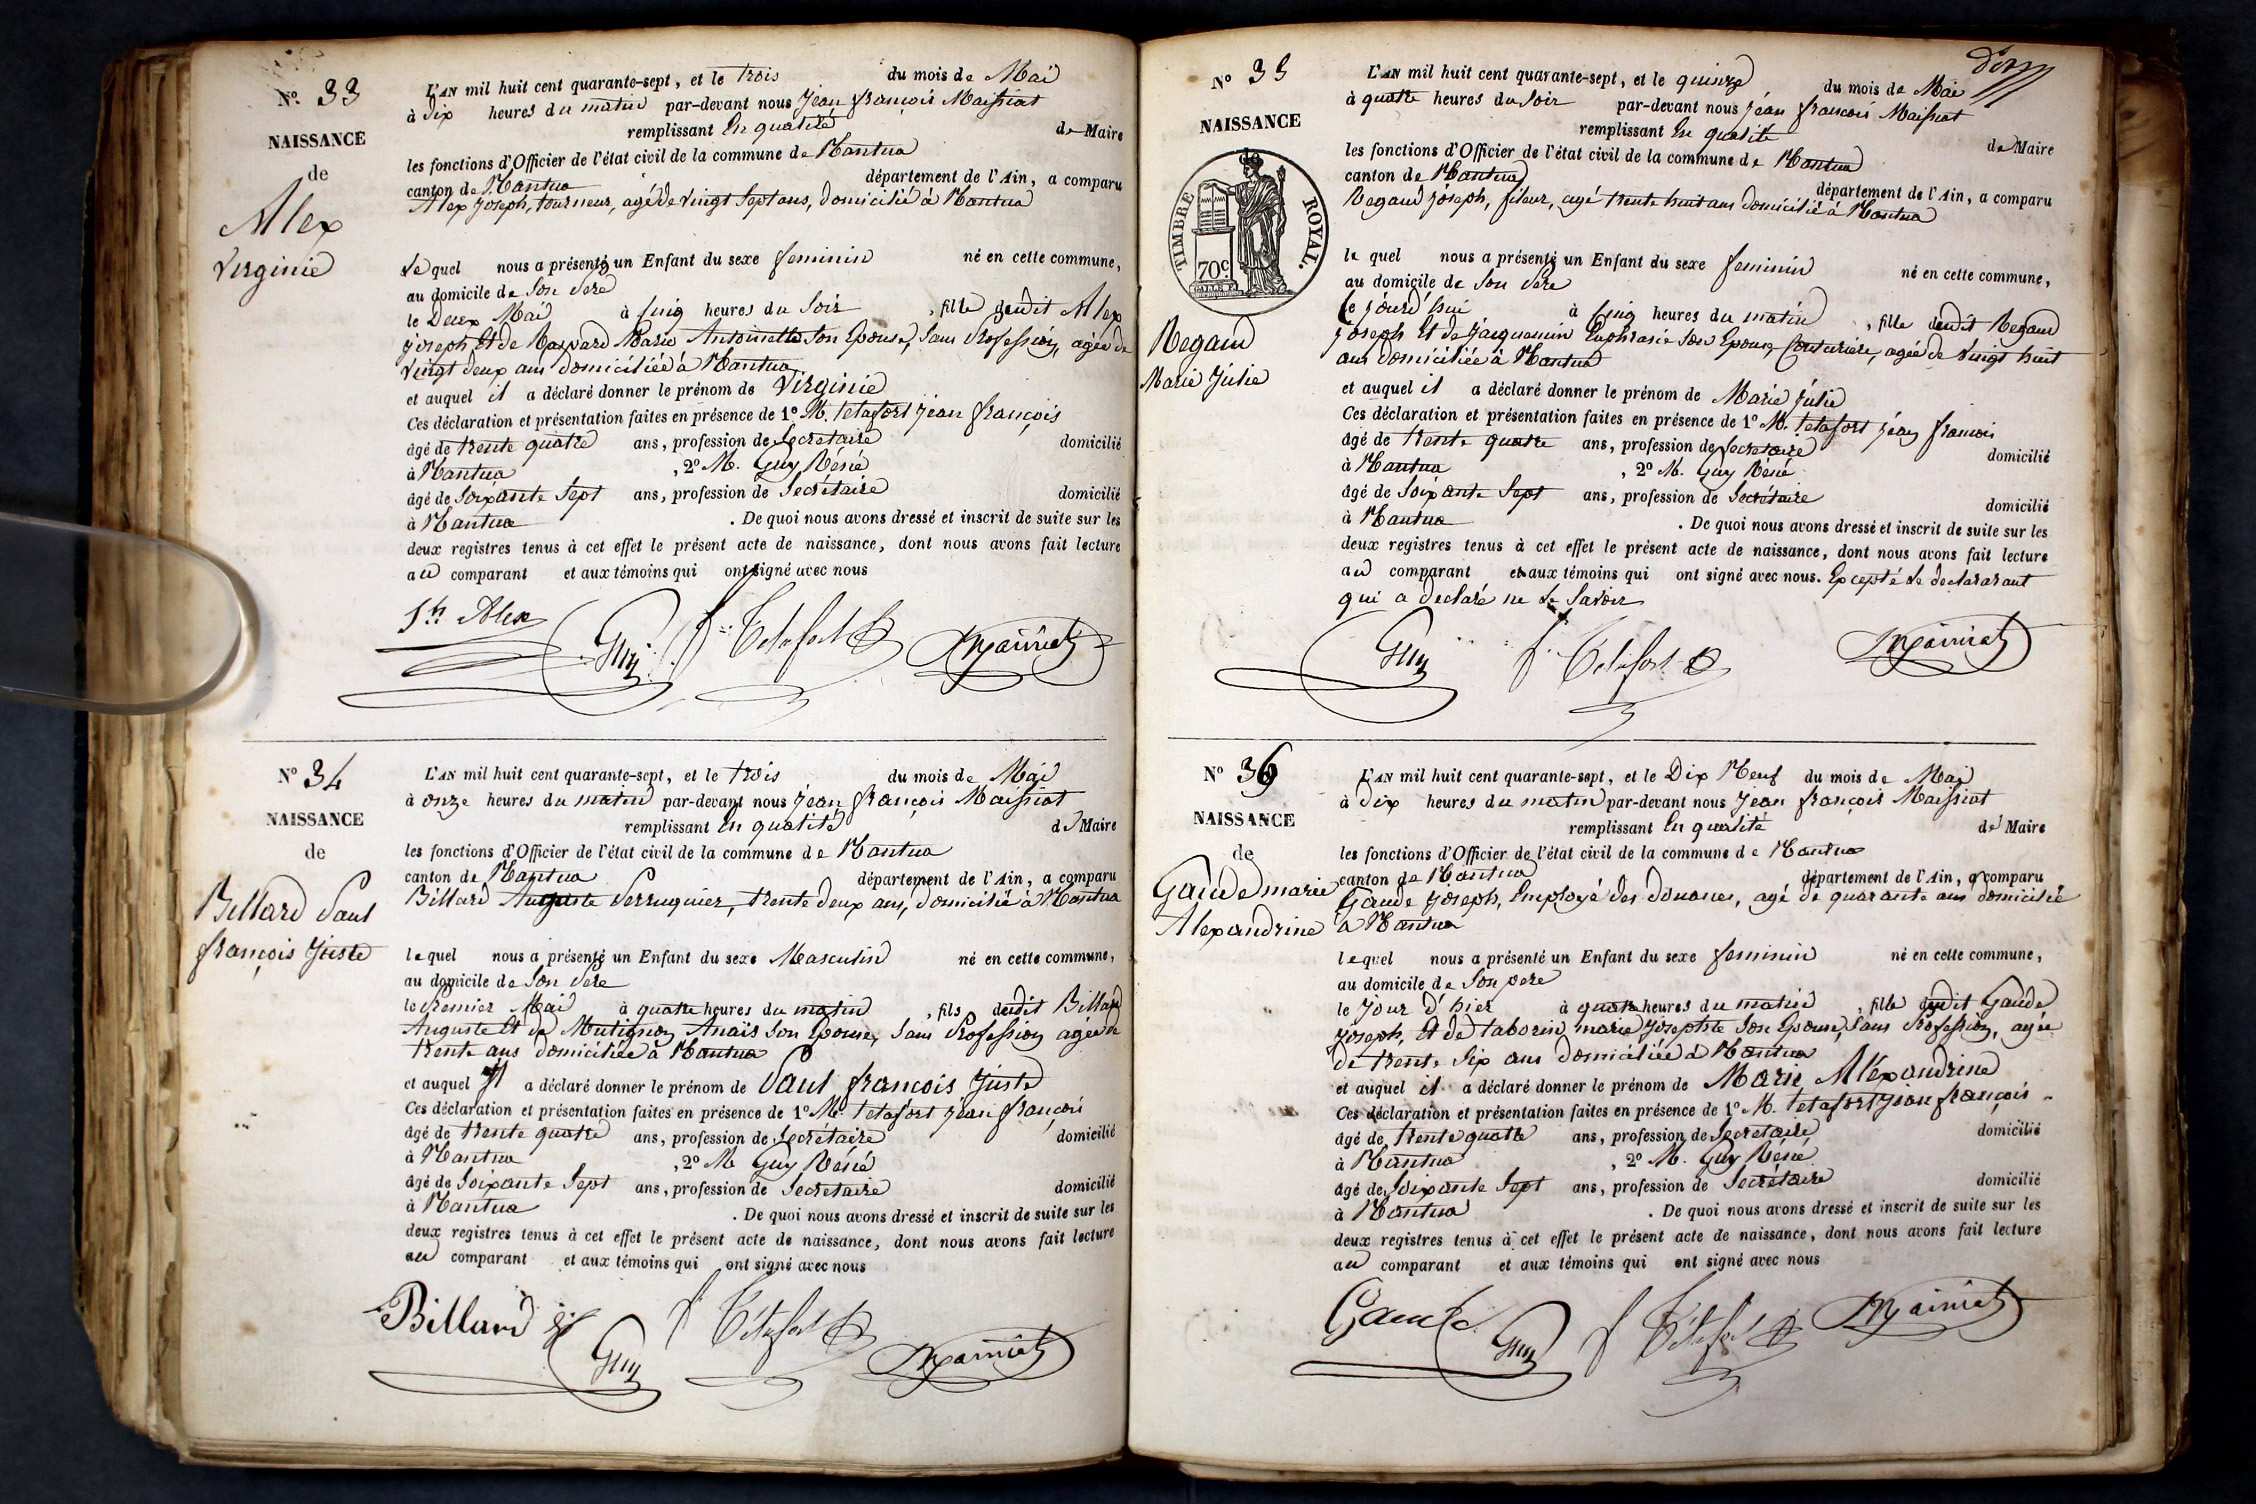 N° 33
NAISSANCE
de
Alex
Virginie
L'AN mil huit cent quarante-sept, et le trois du mois de Mai
à Dix heures du matin par-devant nous Jean françois Maissiat
remplissant En qualité de Maire
les fonctions d'Officier de l'état civil de la commune de Nantua
canton de Nantua département de l'Ain, a comparu
Alex Joseph, tourneur, agé de vingt Sept ans, domicilié à Nantua
Le quel nous a présenté un Enfant du sexe feminin né en cette commune,
au domicile de Son Pere
le Deux Mai à Cinq heures du Soir, fille dudit Alex
Joseph Et de Marie Antoinette Son Epouse, Sans Profession, agée de
vingt deux ans domiciliée à Nantua
et auquel il a déclaré donner le prénom de Virginie
Ces déclaration et présentation faites en présence de 1° M. tetafort Jean françois
âgé de trente quatre ans, profession de Secretaire domicilié
à Nantua, 2° M. Guy Réné
âgé de Soixante Sept ans, profession de Secrétaire domicilié
à Nantua. De quoi nous avons dressé et inscrit de suite sur les
deux registres tenus à cet effet le présent acte de naissance, dont nous avons fait lecture
au comparant et aux témoins qui ont signé avec nous
Jh Alex Guy Tétafort Maissiat
N° 34
NAISSANCE
de
Billard Paul
françois Juste
L'AN mil huit cent quarante-sept, et le trois du mois de Mai
à onze heures du matin par-devant nous Jean françois Maissiat
remplissant En qualité de Maire
les fonctions d'Officier de l'état civil de la commune de Nantua
canton de Nantua département de l'Ain, a comparu
Billard Auguste Perruquier, trente deux ans, domicilié à Nantua
le quel nous a présenté un Enfant du sexe Masculin né en cette commune,
au domicile de Son Pere
le Premier Mai à quatre heures du matin, fils dudit Billard
Auguste Et de Mutignon Anaïs Son Epouse, Sans Profession agée de
trente ans domiciliée à Nantua
et auquel Il a déclaré donner le prénom de Paul françois Juste
Ces déclaration et présentation faites en présence de 1° M. tetafort Jean françois
âgé de trente quatre ans, profession de Secretaire domicilié
à Nantua, 2° M Guy Réné
âgé de Soixante Sept ans, profession de Secretaire domicilié
à Nantua. De quoi nous avons dressé et inscrit de suite sur les
deux registres tenus à cet effet le présent acte de naissance, dont nous avons fait lecture
au comparant et aux témoins qui ont signé avec nous
Billard Guy Tétafort Maissiat
N° 35
NAISSANCE
TIMBRE ROYAL.
70c.
Regaud
Marie Julie
L'AN mil huit cent quarante-sept, et le quinze du mois de Mai
à quatre heures du Soir par-devant nous Jean françois Maissiat
remplissant En qualité de Maire
les fonctions d'Officier de l'état civil de la commune de Nantua
canton de Nantua département de l'Ain, a comparu
Regaud Joseph, fileur, agé trente huit ans domicilié à Nantua
le quel nous a présenté un Enfant du sexe feminin né en cette commune,
au domicile de Son Pere
Ce Jourd'hui à Cinq heures du matin, fille dudit Regaud
Joseph Et de Jacquemin Euphrasie Son Epouse, Couturière, agée de Vingt huit
ans domiciliée à Nantua
et auquel il a déclaré donner le prénom de Marie Julie
Ces déclaration et présentation faites en présence de 1° M. tetafort Jean francois
âgé de trente quatre ans, profession de Secretaire domicilié
à Nantua, 2° M. Guy Réné
âgé de Soixante Sept ans, profession de Secrétaire domicilié
à Nantua. De quoi nous avons dressé et inscrit de suite sur les
deux registres tenus à cet effet le présent acte de naissance, dont nous avons fait lecture
au comparant et aux témoins qui ont signé avec nous. Excepté Le declararant
qui a declaré ne Le Savoir
Guy Tétafort Maissiat
N° 36
NAISSANCE
de
Gaude marie
Alexandrine
L'AN mil huit cent quarante-sept, et le Dix Neuf du mois de Mai
à Dix heures du matin par-devant nous Jean françois Maissiat
remplissant En qualité de Maire
les fonctions d'Officier de l'état civil de la commune de Nantua
canton de Nantua département de l'Ain, a comparu
Gaude Joseph, Employé des douanes, agé de quarante ans domicilié
à Nantua
lequel nous a présenté un Enfant du sexe feminin né en cette commune,
au domicile de Son pere
le Jour d'hier à quatre heures du matin, fille dudit Gaude
Joseph, Et de taborin marie Josephte Son Epouse, Sans Profession, agée
de trente Six ans domiciliée à Nantua
et auquel il a déclaré donner le prénom de Marie Alexandrine
Ces déclaration et présentation faites en présence de 1° M. tetafort Jean françois
âgé de trente quatre ans, profession de Secretaire domicilié
à Nantua, 2° M. Guy Réné
âgé de Soixante Sept ans, profession de Secrétaire domicilié
à Nantua. De quoi nous avons dressé et inscrit de suite sur les
deux registres tenus à cet effet le présent acte de naissance, dont nous avons fait lecture
au comparant et aux témoins qui ont signé avec nous
Gaude Guy Tétafort Maissiat